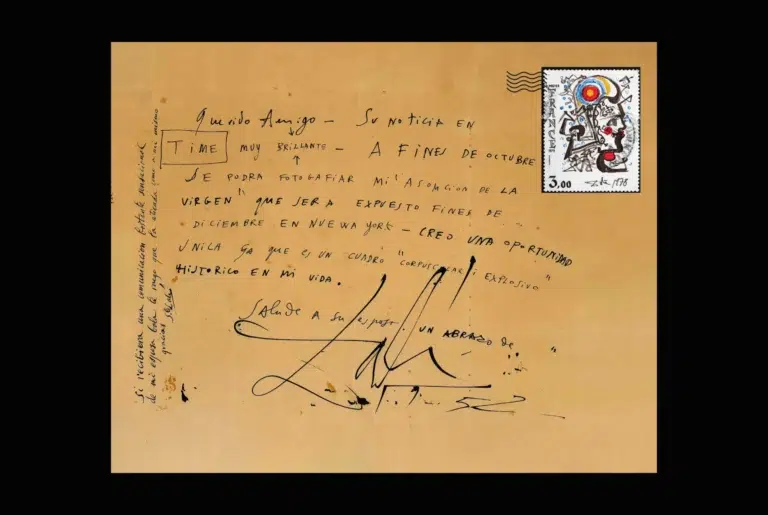 Querido Amigo — Su NOTICIA EN
TIME MUY BRILLANTE — A FINES DE OCTUBRE
SE PODRA FOTOGRAFIAR MI "ASOPCION DE LA
VIRGEN" QUE SERA EXPUESTO FINES DE
DICIEMBRE EN NUEWA YORK — CREO UNA OPORTUNIDAD
UNICA YA QUE ES UN CUADRO "CORPUSCULAR EXPLOSIVO"
HISTORICO EN MI VIDA.
Salude A su esposa. UN ABRAZO de
Dalí
52
Si recibiera una comunicacion
de mi esposa Gala le ruego que la atienda como a mi mismo
gracias
FRANCE
3,00
1978